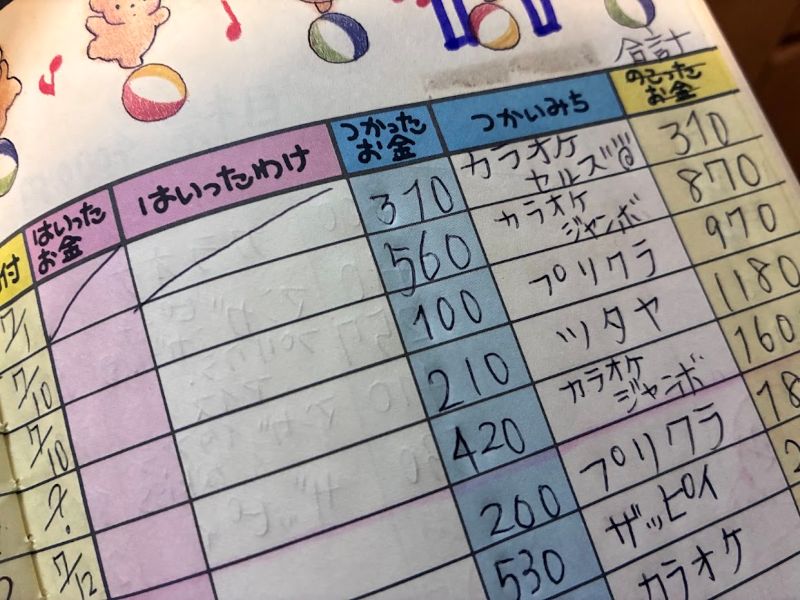 合計
付 はいったお金 はいったわけ つかったお金 つかいみち のこったお金
7/1 310 カラオケ セルズ 310
7/10 560 カラオケ ジャンボ 870
7/10 100 プリクラ 970
? 210 ツタヤ 1180
7/12 420 カラオケ ジャンボ 160
200 プリクラ 18
530 ザッピィ 2
カラオケ